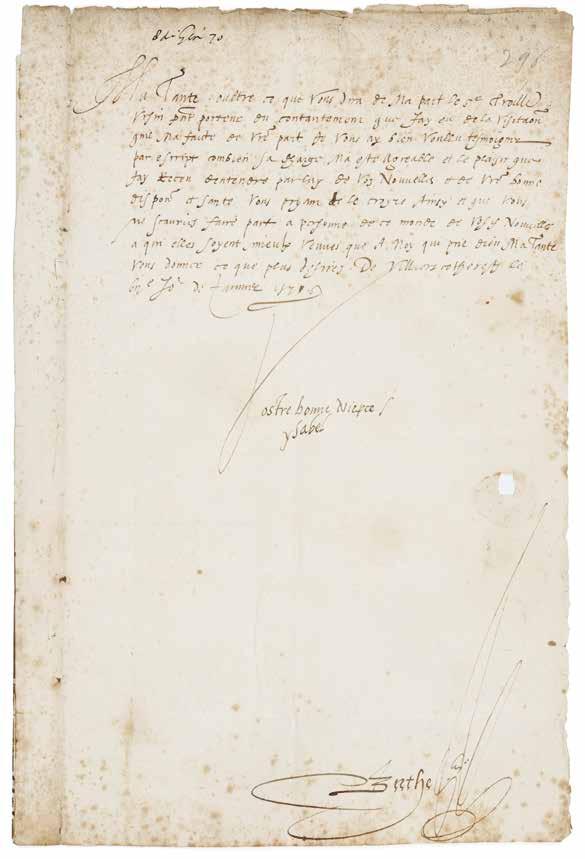 298
Ma Tante oultre ce que Vous dira de Ma part le Sr Troille
porteur du contantement que Jay eu de la Visitaon
Ma faicte de Vre part Je Vous ay bien Voullu tesmoigner
par escript combien sa charge Ma este Agreable et le plaisir que
Jay Receu dentendre par luy de Voz Nouvelles et de Vre bonne
dispon et sante Vous priant de le croyre Ainsy et que Vous
ne scauriez faire part a personne de ce monde de Voz Nouvelles
a qui elles soyent mieulx Venues que A Moy qui prie dieu Ma Tante
Vous donner ce que plus desirez De Villiers costherestz le
Jor de
Vostre bonne Niepce
ysabel